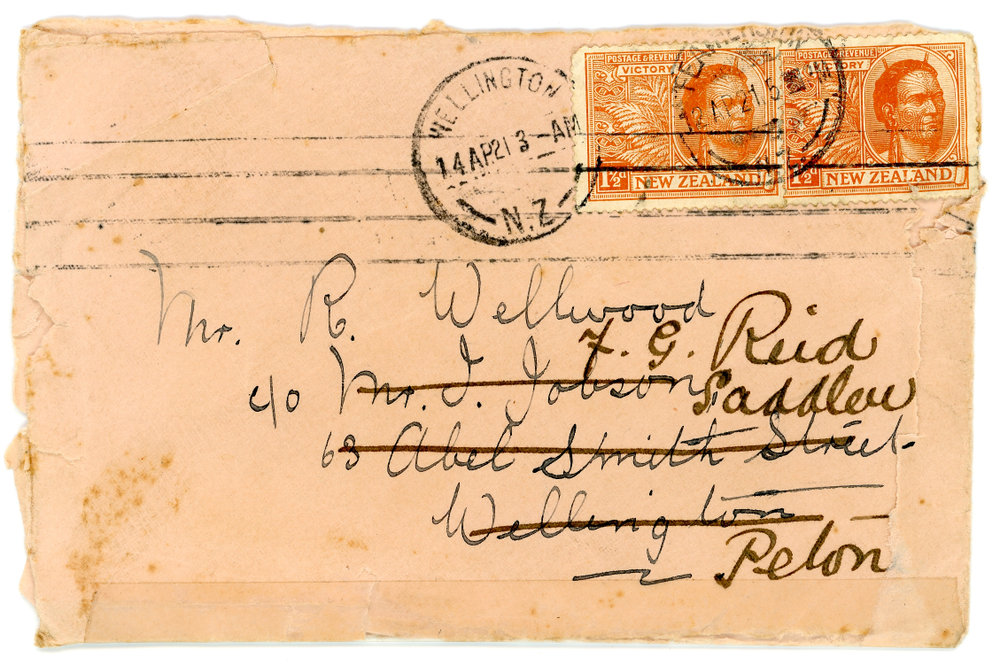 WELLINGTON
14 AP 21 3 - AM
N.Z
POSTAGE & REVENUE
VICTORY
1½d NEW ZEALAND
12 AP 21
POSTAGE & REVENUE
VICTORY
1½d NEW ZEALAND
Mr. R. Wellwood
F. G. Reid
c/o Mr. I. Jobson,
Saddler
63 Abel Smith Street
Wellington
Petone